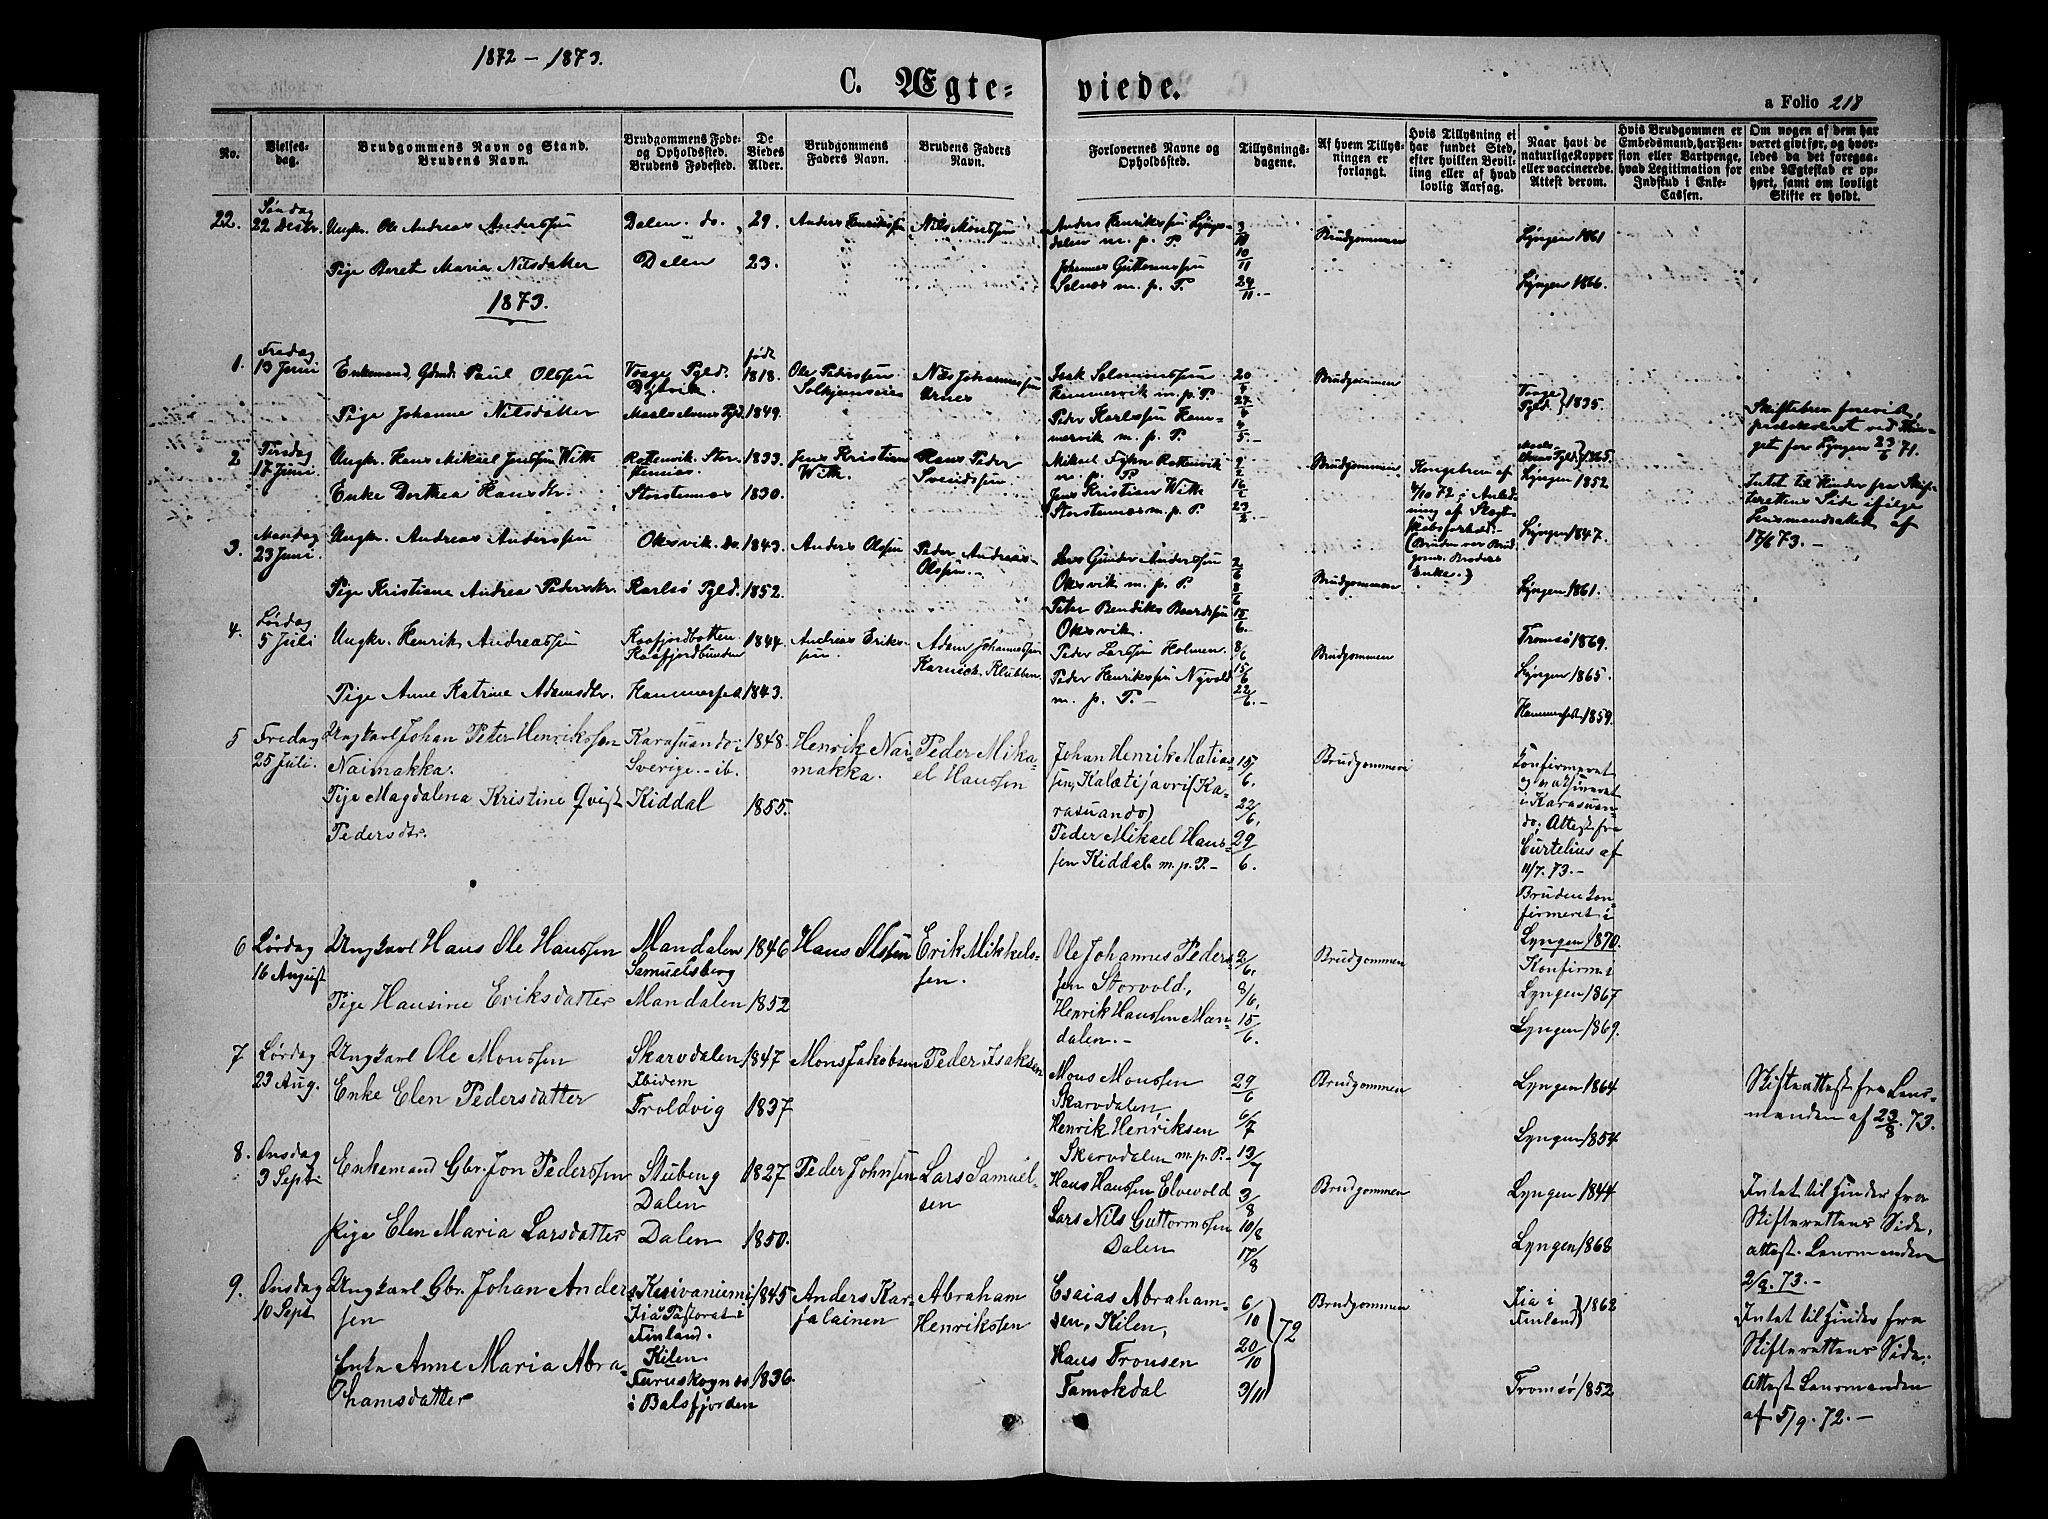 1872 – 1873.
C. Ægte=
viede.
a Folio 218
No.
Vielses-
dag.
Brudgommens Navn og Stand.
Brudens Navn.
Brudgommens Føde-
og Opholdssted.
Brudens Fødested.
De
Viedes
Alder.
Brudgommens
Faders Navn.
Brudens Faders
Navn.
Forlovernes Navne og
Opholdssted.
Tillysnings-
dagene.
Af hvem Tillys-
ningen er
forlangt.
Hvis Tillysning ei
har fundet Sted,
efter hvilken Bevil-
ling eller af hvad
lovlig Aarsag.
Naar havt de
naturlige Kopper
eller vaccinerede.
Attest derom.
Hvis Brudgommen er
Embedsmand, har Pen-
sion eller Vartpenge,
hvad Legitimation for
Indskud i Enke-
Cassen.
Om nogen af dem har
været givt før, og hvor-
ledes da det foregaa-
ende Ægteskab er op-
hørt, samt om lovligt
Skifte er holdt.
22.
Søndag
22 Decbr.
Ungkr. Ole Andreas Anderssen
Dalen. do.
29.
Anders Henrikssen
Nils Monssen
Anders Henrikssen Lyngs-
dalen m. p. P.
3/11
Brudgommen
Lyngen 1861
Pige Beret Maria Nilsdatter
Dalen
23.
Johannes Guttormssen
10/11
Solnæs m. p. P.
24/11.-
Lyngen 1866.
1873.
1.
Fredag
13 Juni
Enkemand, Gdmd. Paul Olssen
Vaage Pgld.
født
1818.
Ole Pederssen
Nils Johannessen
Isak Salomonssen
20/4
Brudgommen
Vaage
Pgld. } 1835.
Pige Johanne Nilsdatter
Maalselvens Pgld
1849.
Peder Karlssen Ham-
mervik m. p. P.
4/5.-
Skiftebrev forevist,
protokolleret ved Thin-
get for Lyngen 23/6 71.
2
Tirsdag
17 Juni.
Ungkr. Hans Mikael Jenssen With
Rottenvik. Stor-
stennæs.
1833.
Jens Kristian
With.
Hans Peder
Svendssen
Mikael Fyhn Rottenvik
m. p. P.
9/2
Brudgommen
Kongebrev af
4/10 72, i Anled-
ning af Slægt-
skabsforhold.-
(Bruden var Brud-
goms. Broders
Enke.)
Lyngen 1852
Intet til Hinder fra Skif-
terettens Side ifølge
Lensmandsattest af
17/6 73.-
Enke Dorthea Hansdtr.
Storstennæs
1830.
Jens Kristian With
16/2
Storstennæs m. p. P.
23/2.-
Lyngen 1847.
3.
Mandag
23 Juni.
Ungkr. Andreas Anderssen
Oksvik. Do.
1843.
Anders Olssen
Peder Andreas
Olssen.-
Lars Gunder Anderssen
Oksvik m. p. P.
2/6
8/6
Brudgommen
Lyngen 1861.
Pige Kristiane Andrea Pedersdtr.
Karlsø Pgld.
1852.
Peter Bendiks Baardssen
Oksvik.
15/6.
Tromsø 1869.
4.
Lørdag
5 Juli
Ungkr. Henrik Andreassen
Kaafjordbotten.
Kaafjordbunden
1844.
Andreas Eriks-
sen
Adam Johannessen
Karnick, Klubben.
Peder Larssen Holmen.
8/6
Brudgommen
Lyngen 1865.
Pige Anne Katrine Adamsdtr.
Hammerfest
1843.
Peder Henrikssen Nyvold
m. p. P.-
15/6
22/6.-
Hammerfest 1859.
5
Fredag
25 Juli.
Ungkarl Johan Peter Henrikssen
Naimakka.
Karasuando i
Sverige.- ib.
1848.
Henrik Nai-
makka.
Peder Mika-
el Hanssen
Johan Henrik Matias-
sen, Kalætijavri (Ka-
rasuando)
15/6.
22/6.
Brudgommen
Konfirmeret
og vaksineret
i Karasuan-
do, Attest fra
Curtelius af
11/7. 73.-
Pige Magdalena Kristine Qvist
Pedersdtr.
Kiddal
1855.
Peder Mikael Hans-
sen Kiddal. m. p. P.-
29/6.
Bruden kon-
firmeret i
Lyngen 1870.
6
Lørdag
16 August
Ungkarl Hans Ole Hanssen
Mandalen
Samuelsberg
1846
Hans Olssen
Erik Mikkels-
sen.
Ole Johannes Peder-
sen Storvold,
2/6.
8/6.
Brudgommen
Konfirm. i
Lyngen 1867
Pige Hansine Eriksdatter
Mandalen
1852
Henrik Hanssen Man-
dalen.-
15/6.
Lyngen 1869.
7
Lørdag
23 Aug.
Ungkarl Ole Monssen
Skarvdalen
Ibidem
1847
Mons Jakobsen
Peder Isaksen
Mons Monssen
Skarvdalen,
29/6
Brudgommen
Lyngen 1864
Skifteattest fra Lens-
manden af 23/8. 73.
Enke Elen Pedersdatter
Troldvig
1837
Henrik Henriksen
Skarvdalen m. p. P.-
6/7
13/7
Lyngen 1854
8.
Onsdag
3 Sept.
Enkemand Gbr. Jon Pederssen
Stubeng
Dalen
1827
Peder Johnsen
Lars Samuel-
sen
Hans Hanssen Elvevold
3/8
Brudgommen
Lyngen 1844
Intet til Hinder fra
Skifterettens Side,
attest. Lensmanden
2/9. 73.-
Pige Elen Maria Larsdatter
Dalen
1850.
Lars Nils Guttormssen
Dalen
10/8
17/8
Lyngen 1868
9.
Onsdag
10 Sept
Ungkarl Gbr. Johan Anders-
sen
Kusivaniemi
Iia Pastorat i
Finland.
Kilen.
1845
Anders Kar-
jalainen
Abraham
Henrikssen
Esaias Abraham-
sen, Kilen,
6/10
Brudgommen
Iia i
Finland } 1862
Intet til Hinder fra
Skifterettens Side.
Attest Lensmanden
af 5/9. 72.-
Enke Anne Maria Abra-
hamsdatter
Furuskognes
i Balsfjorden
1836.
Hans Tronsen
Tamokdal
20/10
3/11
72
Tromsø 1852